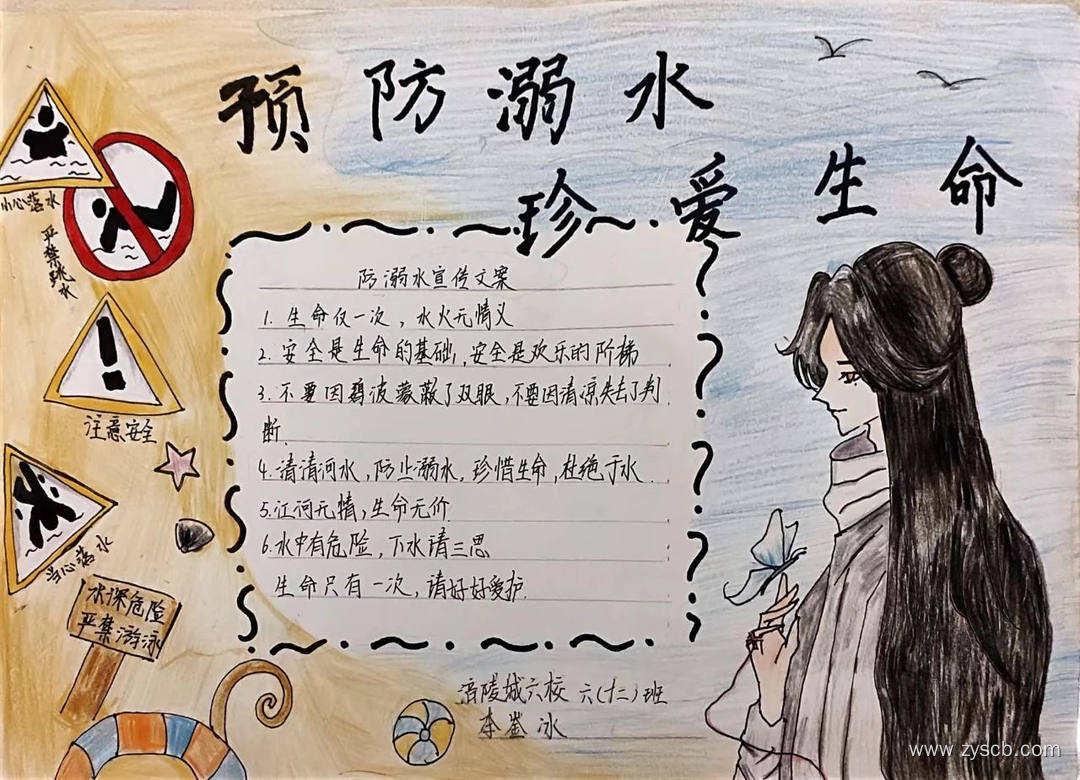 预防溺水
珍爱生命
小心落水
严禁跳水
注意安全
当心落水
水深危险
严禁游泳
防溺水宣传文案
1. 生命仅一次，水火无情义
2. 安全是生命的基础，安全是欢乐的阶梯
3. 不要因碧波蒙蔽了双眼，不要因清凉失去了判
断.
4. 清清河水，防止溺水，珍惜生命，杜绝于水.
5. 江河无情，生命无价
6. 水中有危险，下水请三思
生命只有一次，请好好爱护.
涪陵城六校 六(十二)班
李 冰
www.zyscb.com